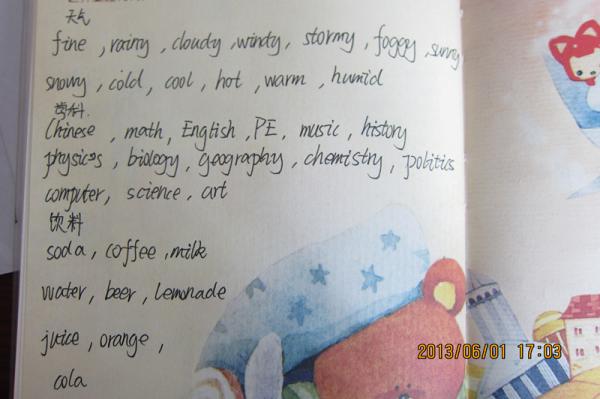 天气
fine , rainy , cloudy , windy , stormy , foggy , sunny
snowy , cold , cool , hot , warm , humid
学科
Chinese , math , English , PE , music , history
physics , biology , geography , chemistry , politics
computer , science , art
饮料
soda , coffee , milk
water , beer , lemonade
juice , orange ,
cola
2013/06/01 17:03